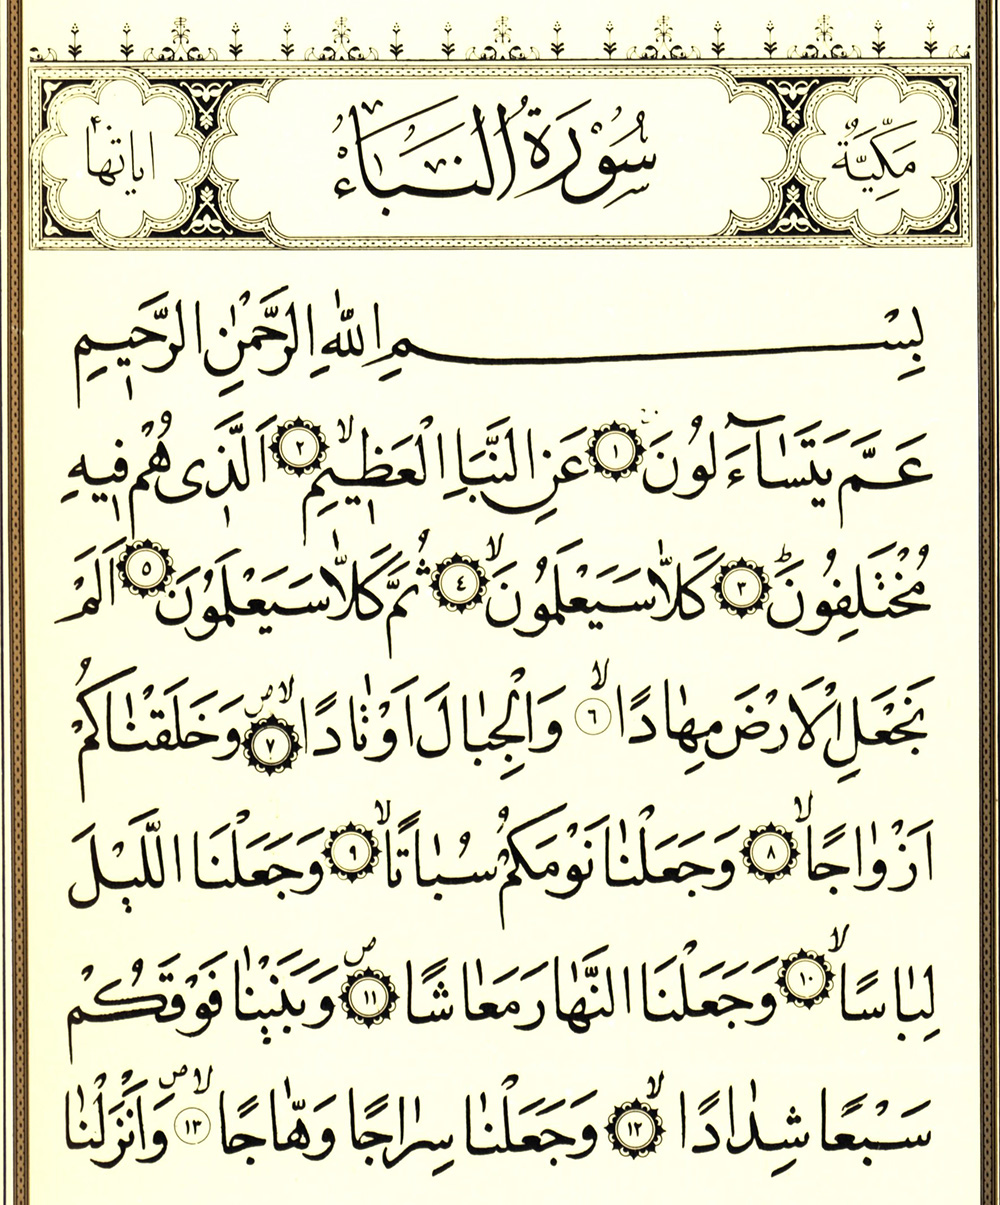 مَكِّيَّةٌ سُورَةُ النَّبَاءِ اياتها ٤٠
بِسْمِ اللّٰهِ الرَّحْمٰنِ الرَّحٖيمِ
عَمَّ يَتَسَٓاءَلُونَ ﴿١﴾ عَنِ النَّبَاِ الْعَظٖيمِۙ ﴿٢﴾ اَلَّذٖى هُمْ فٖيهِ
مُخْتَلِفُونَۜ ﴿٣﴾ كَلَّا سَيَعْلَمُونَۙ ﴿٤﴾ ثُمَّ كَلَّا سَيَعْلَمُونَ ﴿٥﴾ اَلَمْ
نَجْعَلِ الْاَرْضَ مِهَادًاۙ ﴿٦﴾ وَالْجِبَالَ اَوْتَادًاۙۖ ﴿٧﴾ وَخَلَقْنَاكُمْ
اَزْوَاجًاۙ ﴿٨﴾ وَجَعَلْنَا نَوْمَكُمْ سُبَاتًاۙ ﴿٩﴾ وَجَعَلْنَا الَّيْلَ
لِبَاسًاۙ ﴿١٠﴾ وَجَعَلْنَا النَّهَارَ مَعَاشًاۖ ﴿١١﴾ وَبَنَيْنَا فَوْقَكُمْ
سَبْعًا شِدَادًاۙ ﴿١٢﴾ وَجَعَلْنَا سِرَاجًا وَهَّاجًاۙۖ ﴿١٣﴾ وَاَنْزَلْنَا